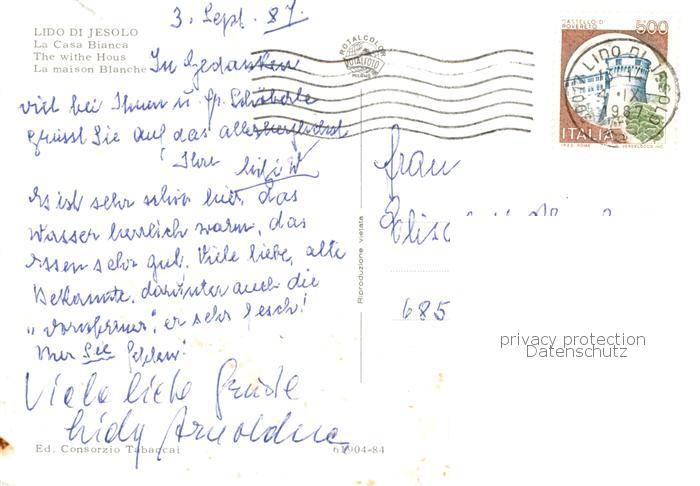 3. Sept. 87.
LIDO DI JESOLO
La Casa Bianca
The withe Hous
La maison Blanche
In Gedanken
viel bei Ihnen u. Fr.
grüsst Sie auf das allerherzlichst
Ihre
Es ist sehr schön hier, das
Wasser herrlich warm, das
Essen sehr gut. Viele liebe, alte
Bekannte, darunter auch die
er sehr fesch!
Nur Sie fehlen!
Viele liebe Grüße
ROTALCOLOR
ROTALFOTO
MILANO
CASTELLO DI
ROVERETO
500
ITALIA
LIDO DI JESOLO
1987
Frau
685
Riproduzione vietata
privacy protection
Datenschutz
Ed. Consorzio Tabaccai
61904-84